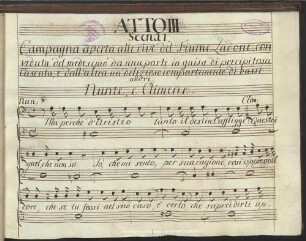 ATTO III
Scena I
Campagna aperta alle rive del Fiume Ladone, con
veduta del medesimo da una parte in guisa di precipitosa
Cascata, e dall'altra un delizioso compartimento di bassi
allori
Nunte, e Climene.
Nun. Clim.
Ma perchè d'Elvistro tanto il destin t'affligge? Questo è
quel che non so. So che mi sento, per sua cagione, così oppressa
core, che se tu fossi nel suo caso, è certo, che saprei dirti an-